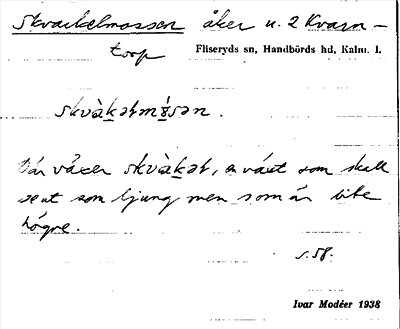 Skvackelmossen åker u. 2 Kvarn-
torp Fliseryds sn, Handbörds hd, Kalm. l.
skvàkətmɷ́sən.
Där växer skvàkət, en växt som skall
se ut som ljung men som är lite
högre.
s. 58.
Ivar Modéer 1938